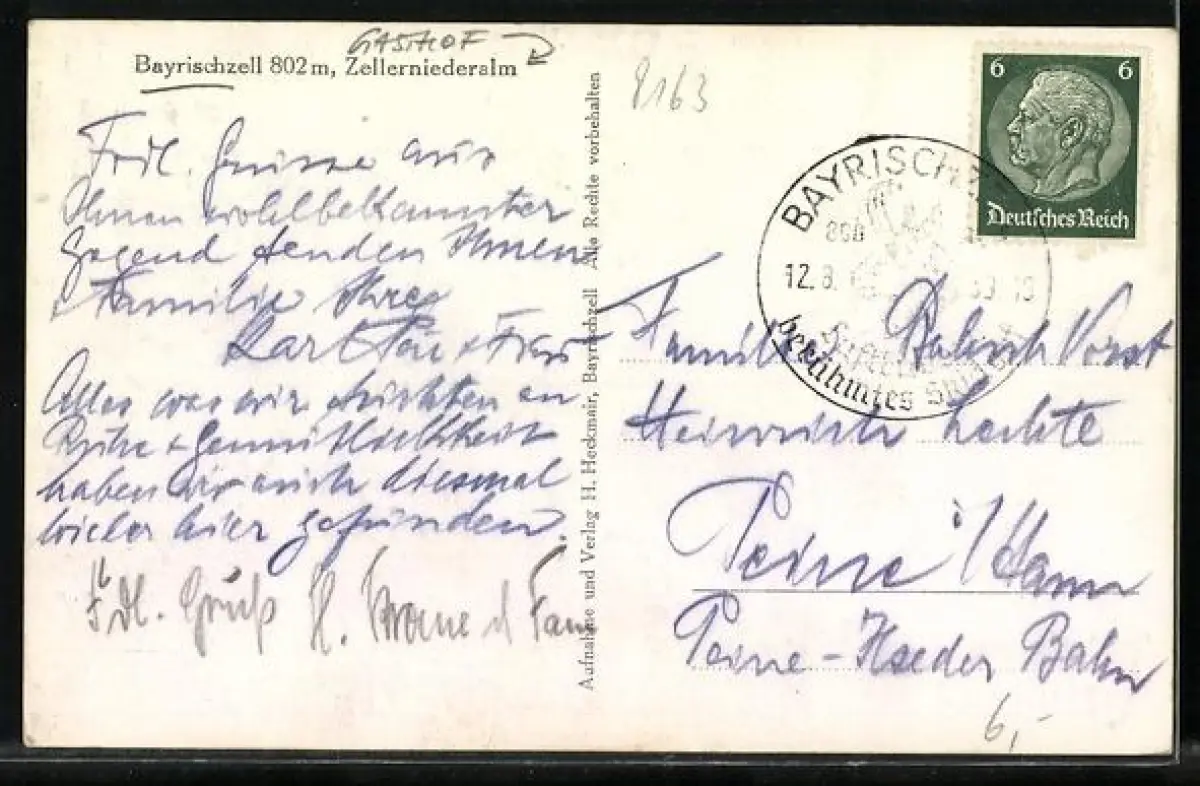 GASTHOF
Bayrischzell 802 m, Zellerniederalm
Frdl. Grüsse aus
Ihnen wohlbekannter
Gegend senden Ihnen
+ Familie Ihre
Karl + Frau
Alles was wir suchten an
Ruhe + Gemütlichkeit
haben wir auch diesmal
wieder hier gefunden.
Fdl. Gruß H. Fam
Aufnahme und Verlag H. Heckmair, Bayrischzell Alle Rechte vorbehalten
8163
6 6
Deutsches Reich
BAYRISCHZE
12.8.
berühmtes
Familie Bahnh Vorst
Heinrich Lechte
Peine i/Hann
Peine-Ilseder Bahn
6,-